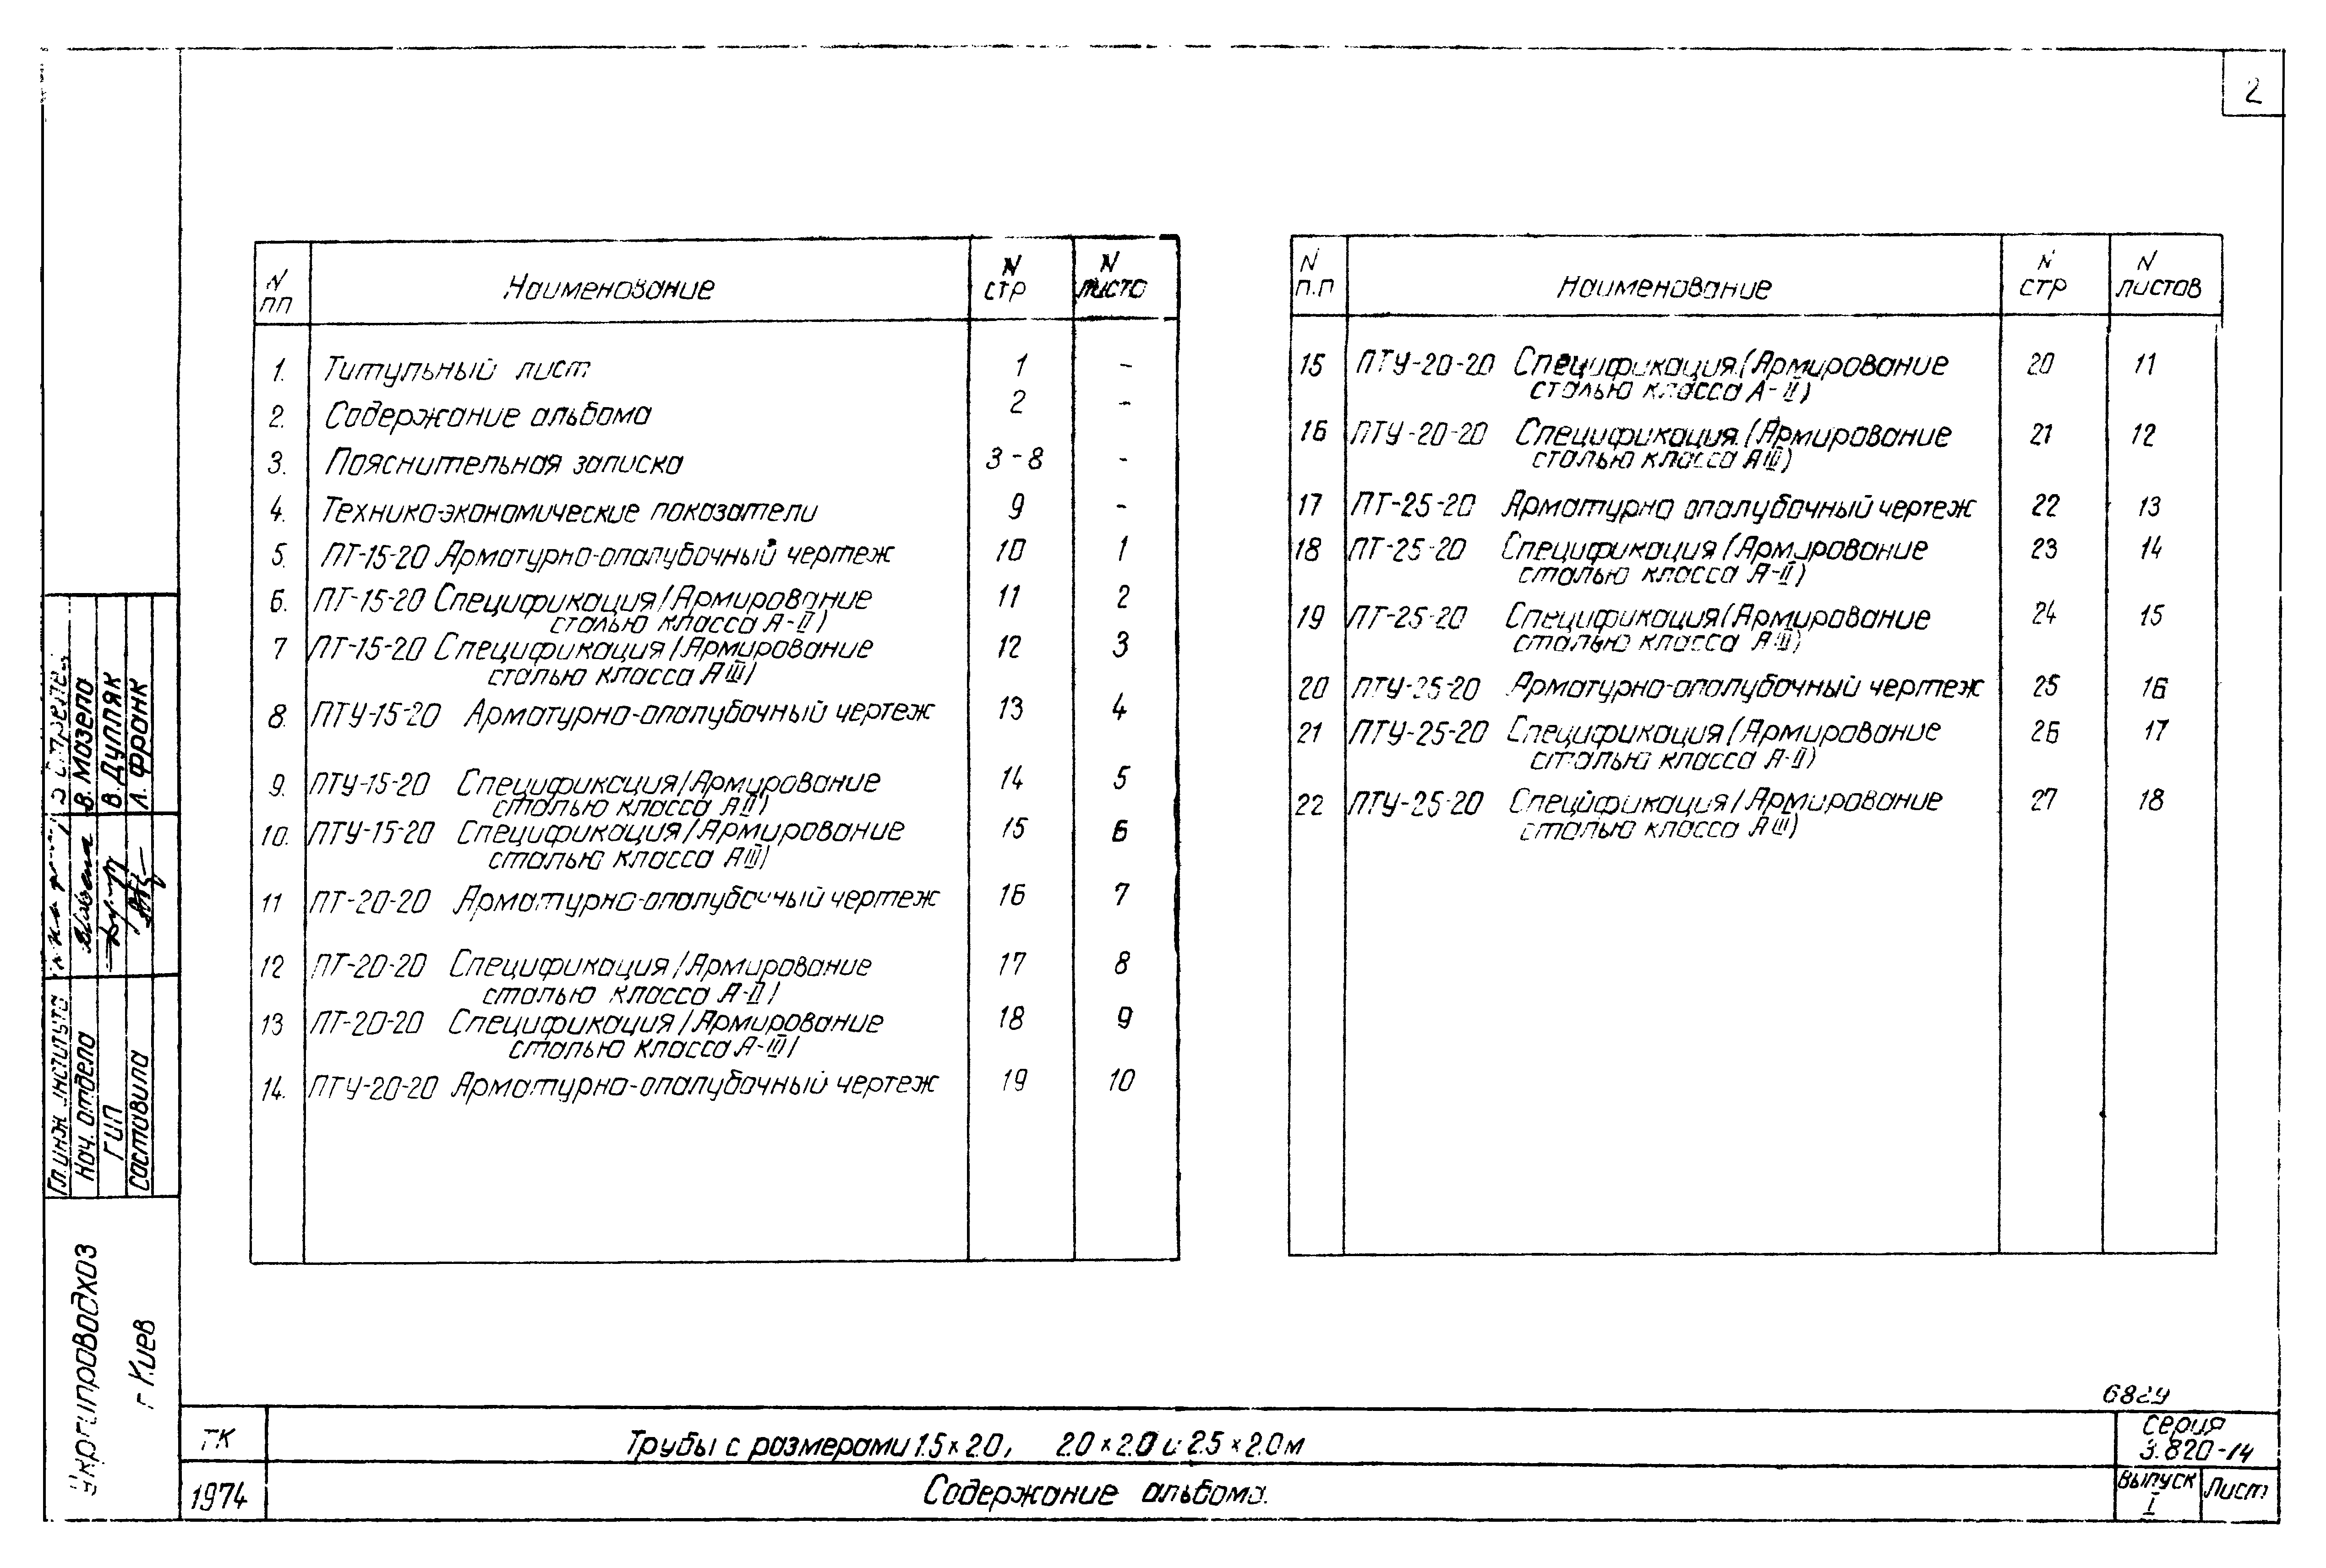 2
N пп Наименование N стр N листа
1. Титульный лист 1 -
2. Содержание альбома 2 -
3. Пояснительная записка 3-8 -
4. Технико-экономические показатели 9 -
5. ПТ-15-20 Арматурно-опалубочный чертеж 10 1
6. ПТ-15-20 Спецификация /Армирование 11 2
сталью класса А-II)
7 ПТ-15-20 Спецификация /Армирование 12 3
сталью класса АIII/
8. ПТУ-15-20 Арматурно-опалубочный чертеж 13 4
9. ПТУ-15-20 Спецификация/Армирование 14 5
сталью класса АII)
10. ПТУ-15-20 Спецификация/Армирование 15 6
сталью класса АIII/
11 ПТ-20-20 Арматурно-опалубочный чертеж 16 7
12 ПТ-20-20 Спецификация /Армирование 17 8
сталью класса А-II/
13 ПТ-20-20 Спецификация /Армирование 18 9
сталью класса А-III/
14. ПТУ-20-20 Арматурно-опалубочный чертеж 19 10
N п.п Наименование N стр N листов
15 ПТУ-20-20 Спецификация.(Армирование 20 11
сталью класса А-II)
16 ПТУ-20-20 Спецификация.(Армирование 21 12
сталью класса АIII)
17 ПТ-25-20 Арматурно опалубочный чертеж 22 13
18 ПТ-25-20 Спецификация (Армирование 23 14
сталью класса А-II)
19 ПТ-25-20 Спецификация(Армирование 24 15
сталью класса АIII)
20 ПТУ-25-20 Арматурно-опалубочный чертеж 25 16
21 ПТУ-25-20 Спецификация (Армирование 26 17
сталью класса А-II)
22 ПТУ-25-20 Спецификация/Армирование 27 18
сталью класса АIII)
Гл. инж института
Нач. отдела В. Мазепа
ГИП В. Дупляк
Составила Л. Франк
Укргипроводхоз
г Киев
6829
ТК Трубы с размерами 1.5×2.0, 2.0×2.0 и 2.5×2.0м серия
3.820-14
1974 Содержание альбома. Выпуск Лист
I